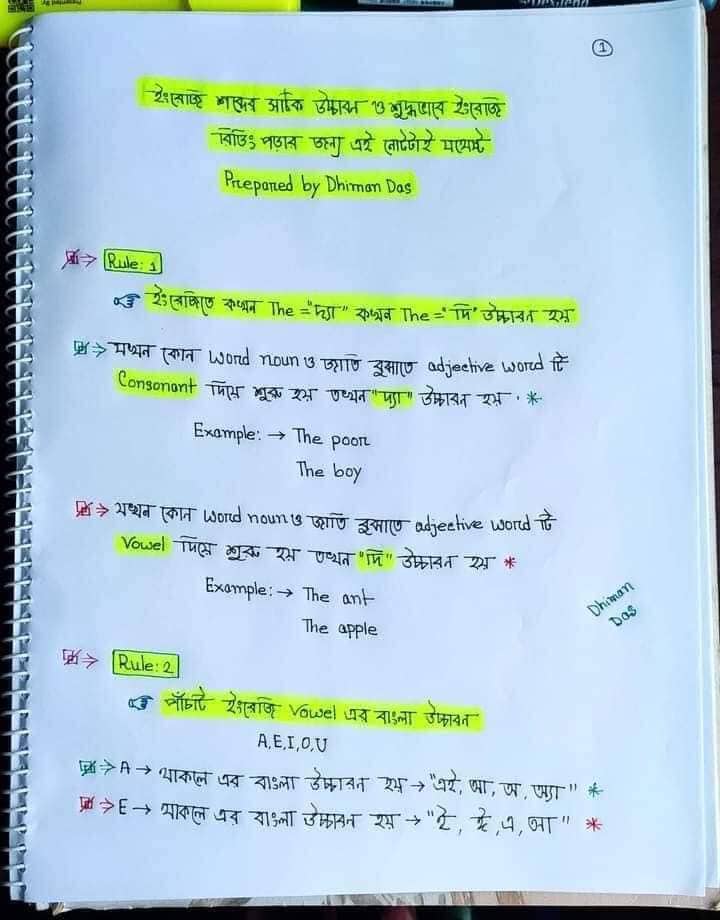 1
ইংরেজি শব্দের সঠিক উচ্চারন ও শুদ্ধভাবে ইংরেজি
রিডিং পড়ার জন্য এই নোটটাই যথেষ্ট
Prepared by Dhiman Das
Rule: 1
ইংরেজিতে কখন The = "দ্যা" কখন The = "দি" উচ্চারন হয়
যখন কোন word noun ও জাতি বুঝাতে adjective word টি
Consonant দিয়ে শুরু হয় তখন "দ্যা" উচ্চারন হয়। *
Example: → The poor
The boy
যখন কোন word noun ও জাতি বুঝাতে adjective word টি
Vowel দিয়ে শুরু হয় তখন "দি" উচ্চারন হয় *
Example: → The ant
The apple
Dhiman
Das
Rule: 2
পাঁচটি ইংরেজি Vowel এর বাংলা উচ্চারন
A,E,I,O,U
A → থাকলে এর বাংলা উচ্চারন হয় → "এই, আ, অ, অ্যা" *
E → থাকলে এর বাংলা উচ্চারন হয় → "ই, ঈ, এ, আ" *